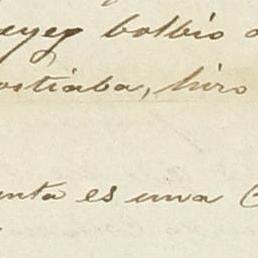 eyes bolbio
ostiaba, hiro
enta es una